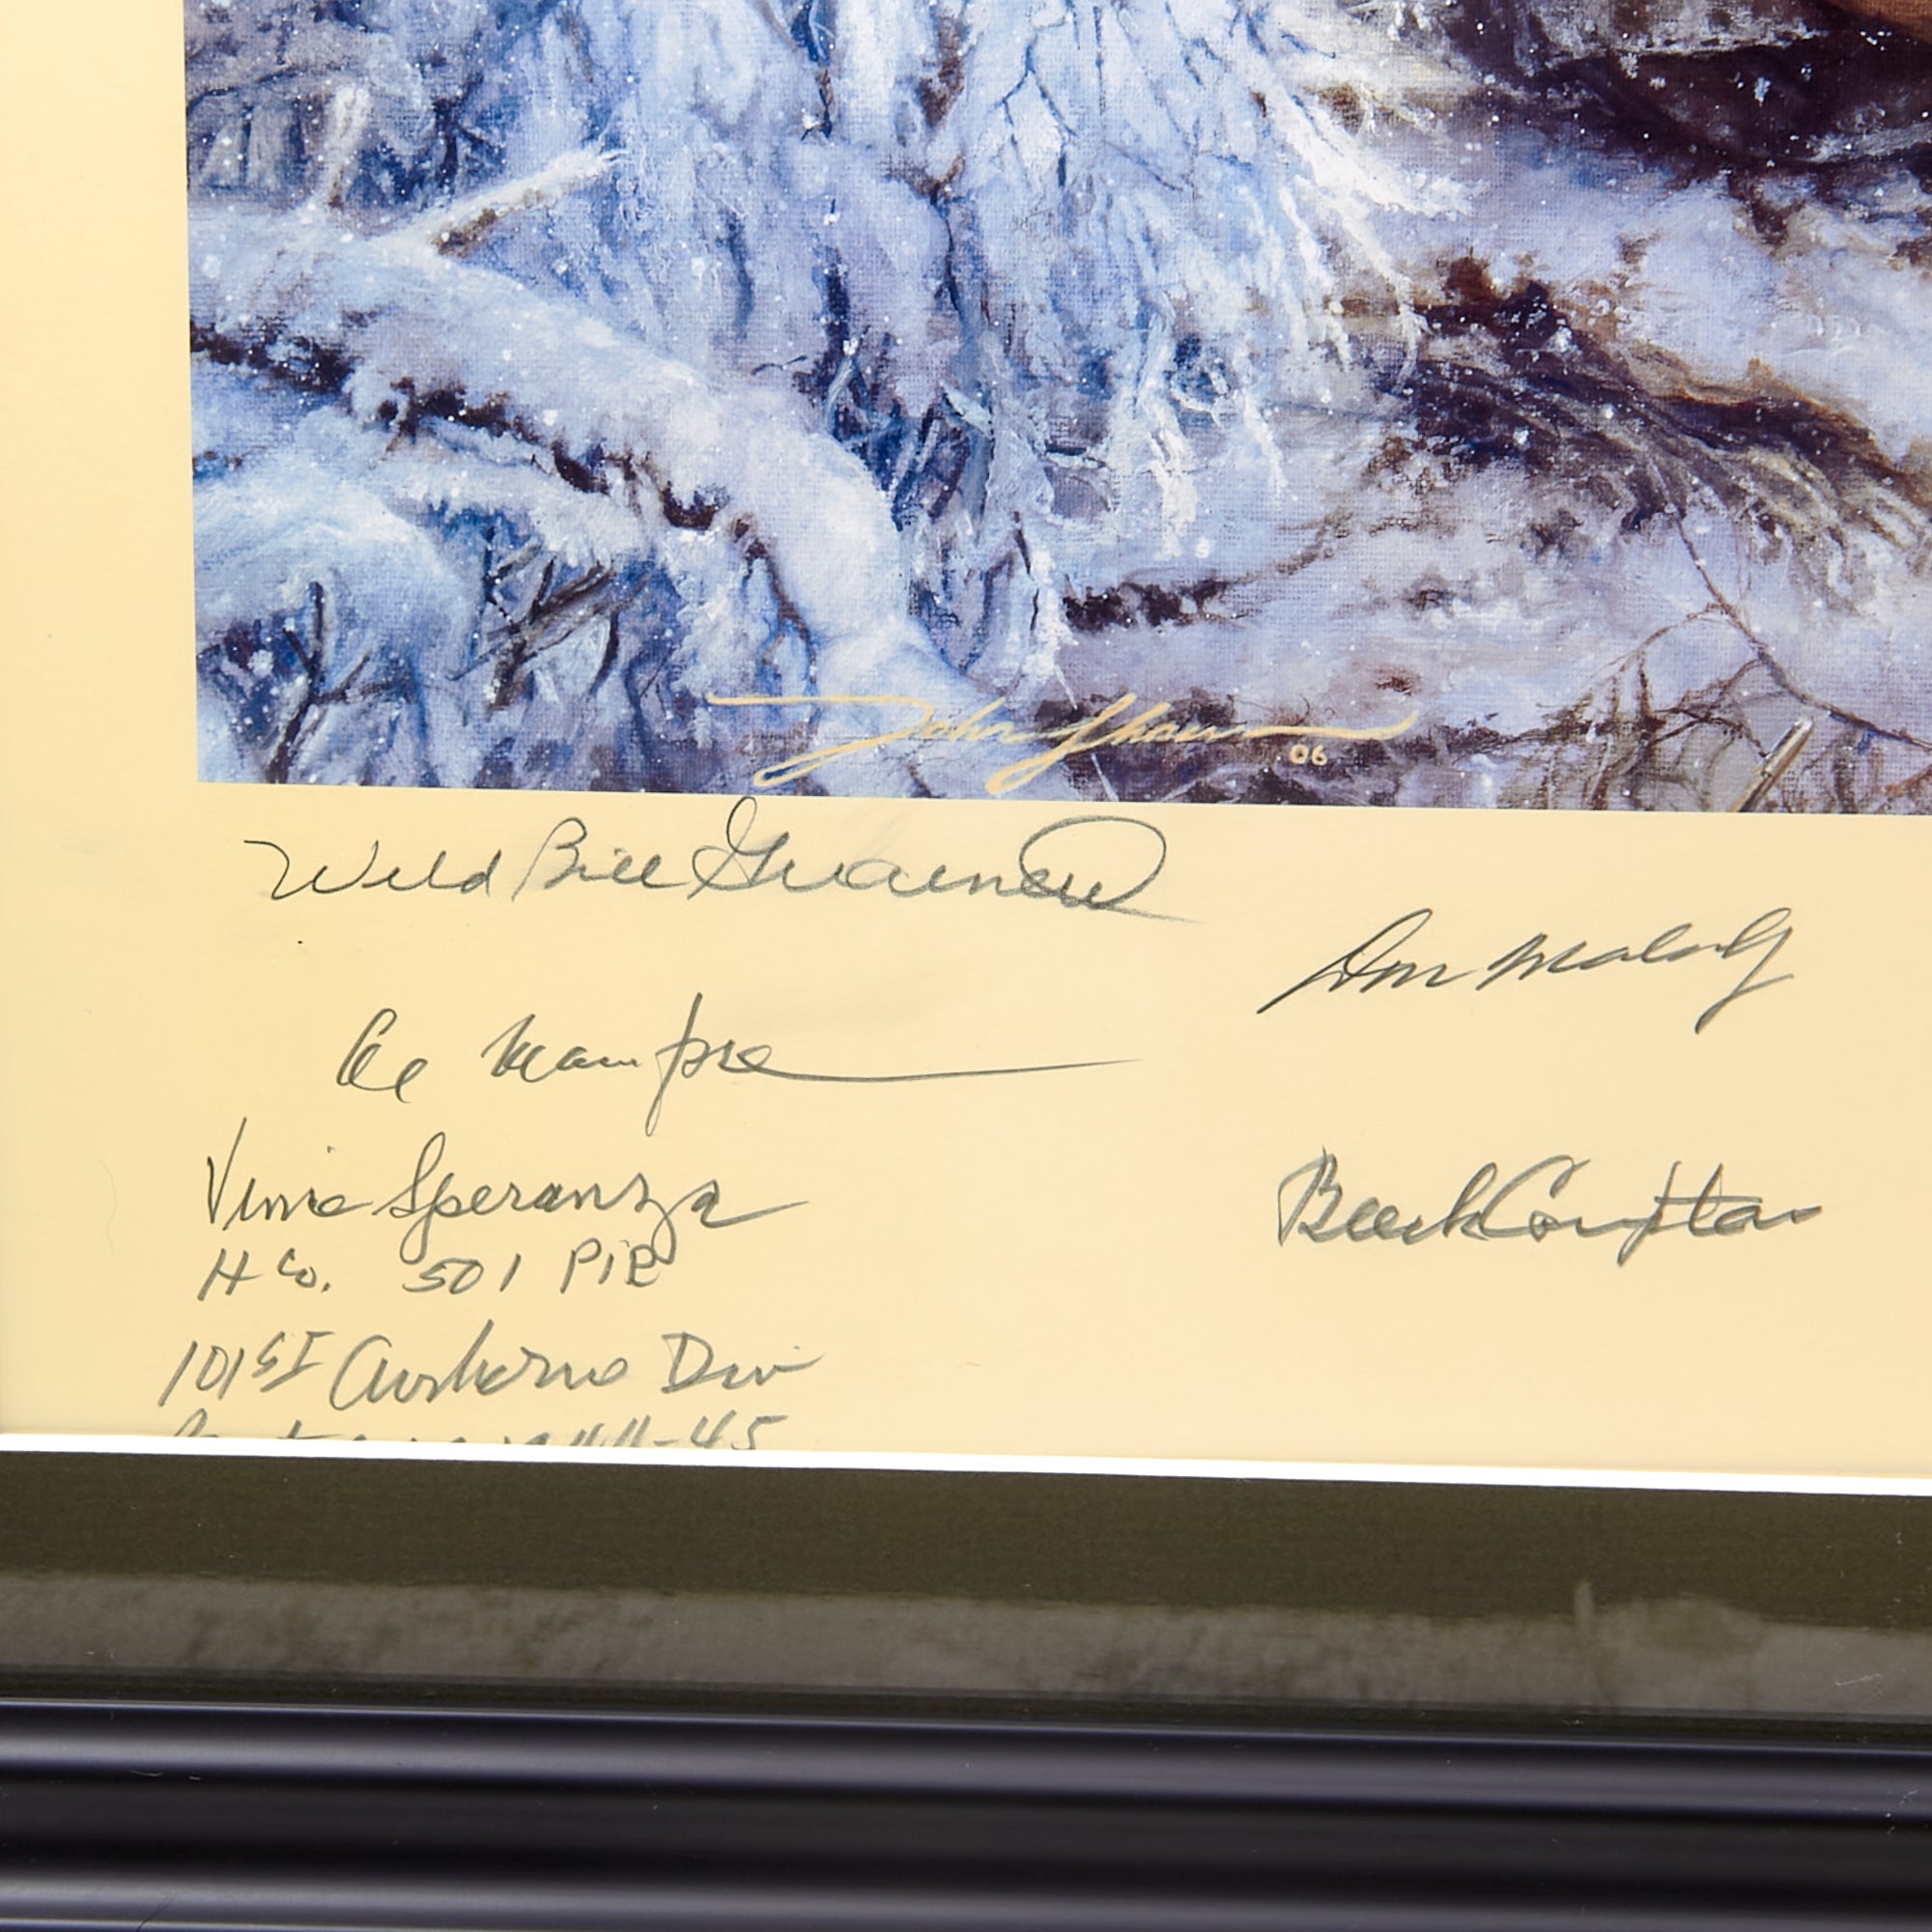 John Shaw 06
Wild Bill Guarnere
Don Malarkey
Al Mampre
Vince Speranza
Buck Compton
H Co. 501 PIR
101ST Airborne Div
44-45